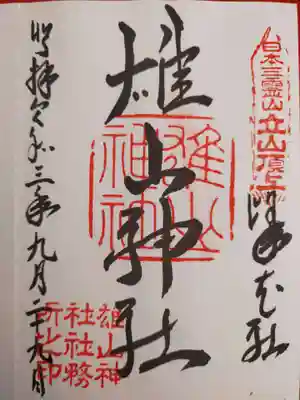 日本三霊山立山頂上
峰本社
雄山神社
雄山
神社
登拝令和三年九月二十九日
雄山神
社社務
所之印